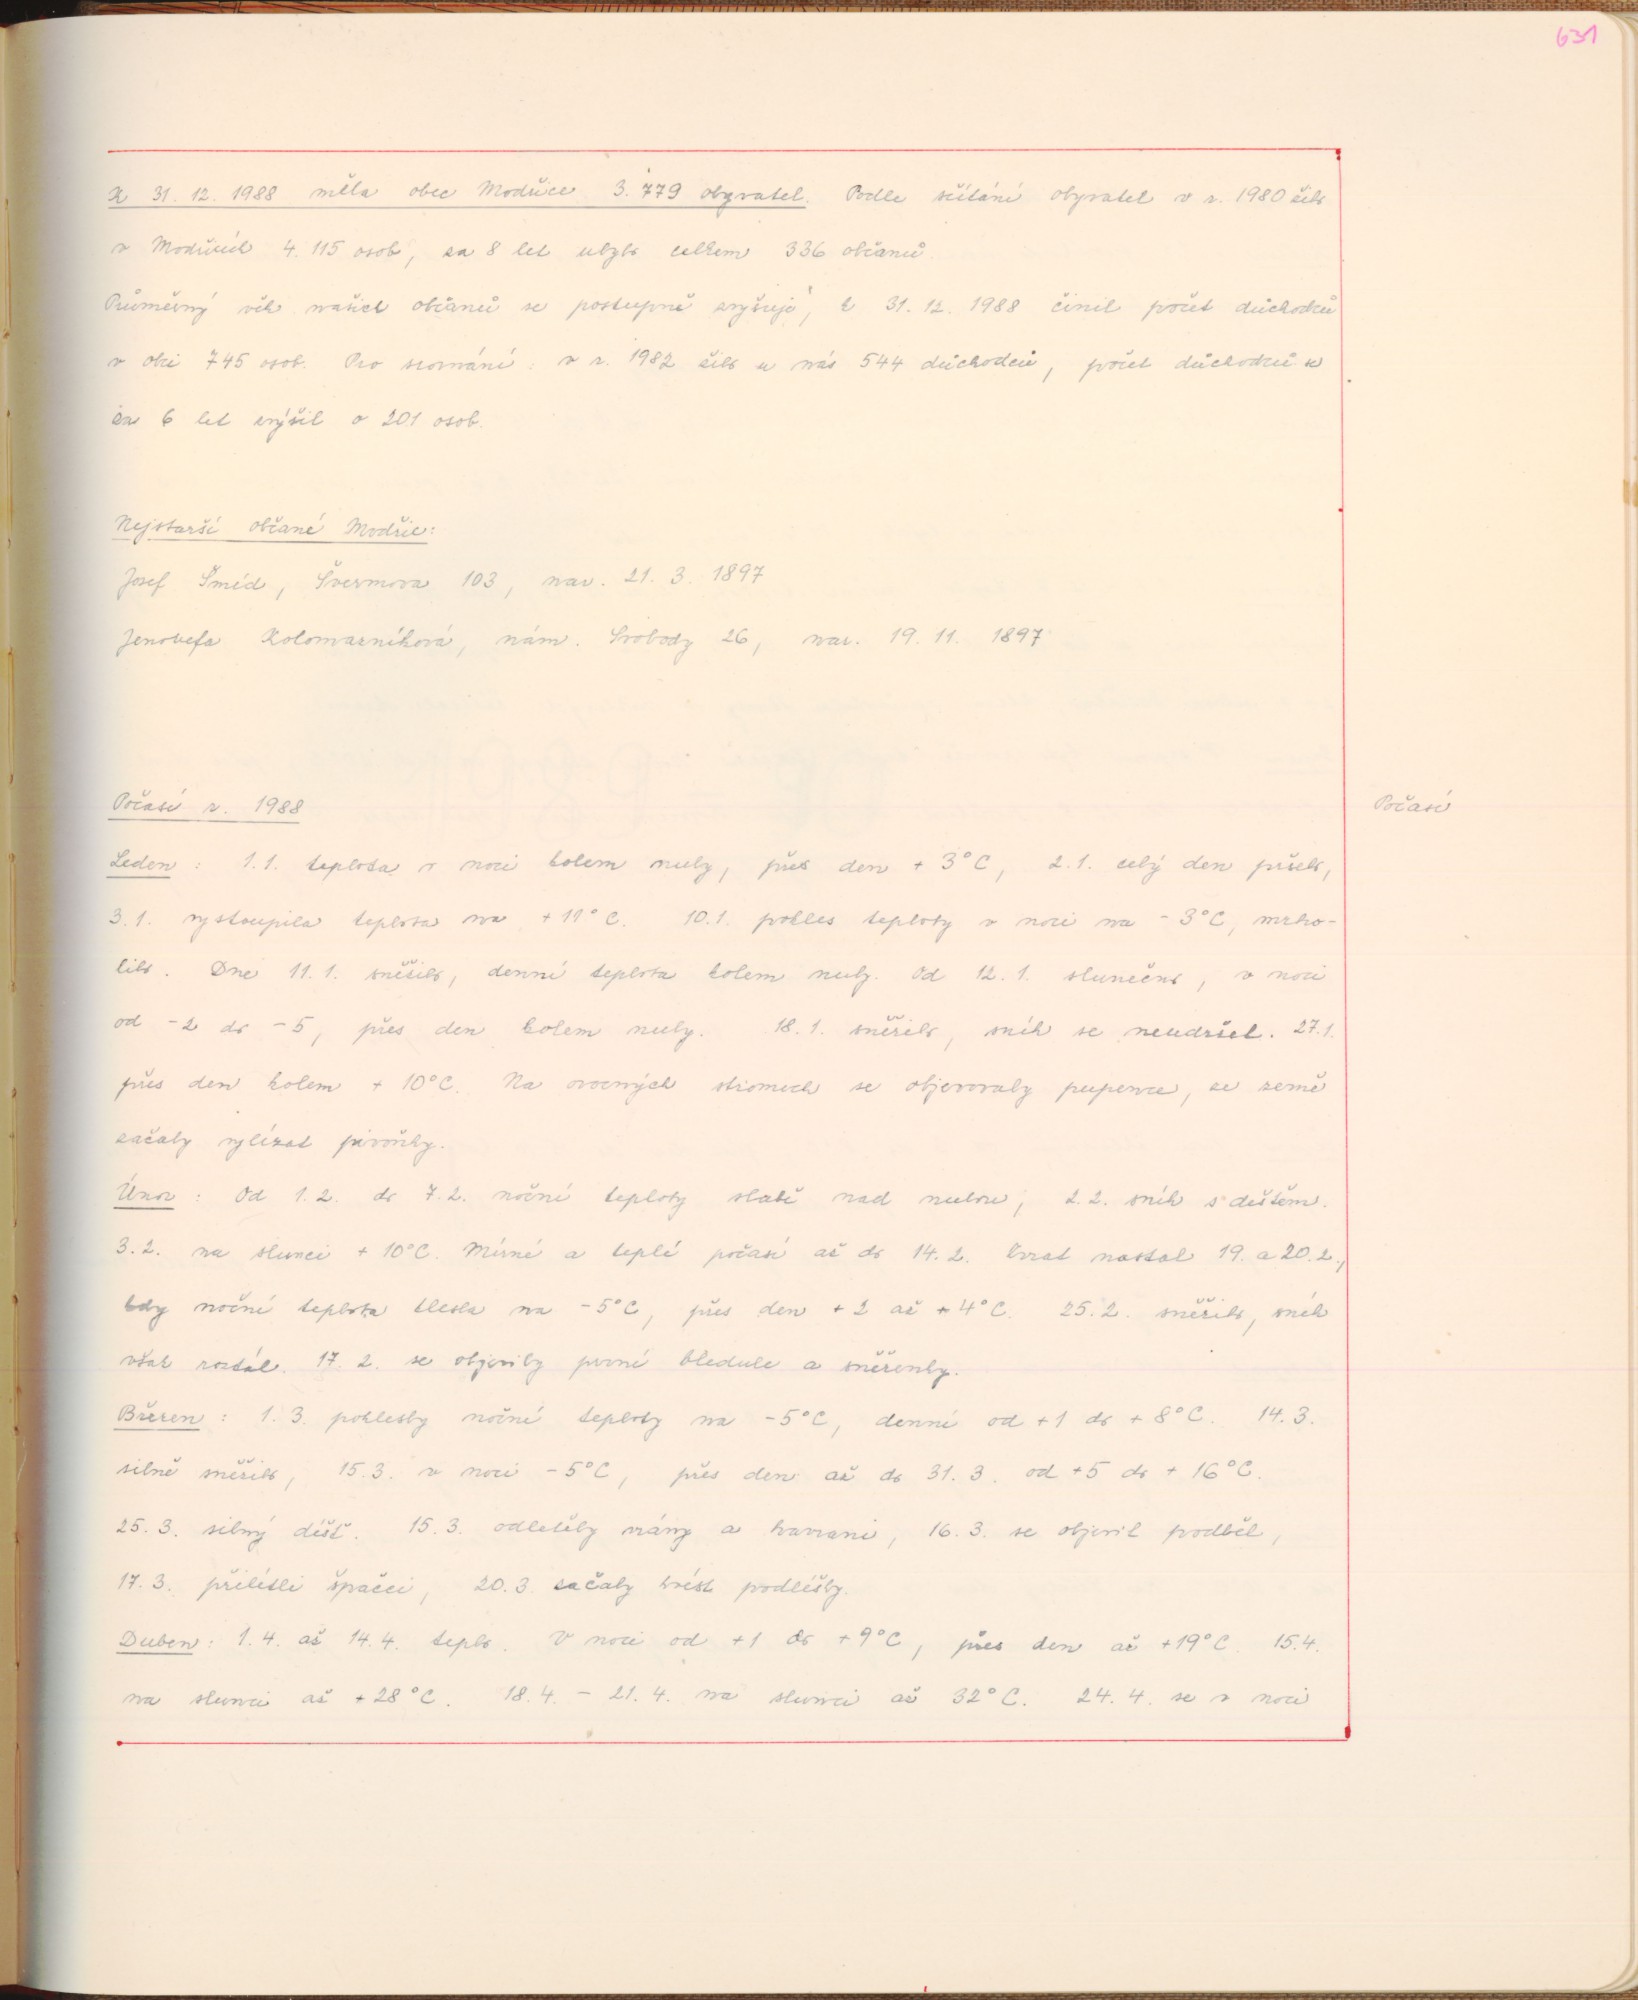 631
K 31. 12. 1988 měla obec Modřice 3.779 obyvatel. Podle sčítání obyvatel v r. 1980 žilo
v Modřicích 4.115 osob, za 8 let ubylo celkem 336 občanů.
Průměrný věk našich občanů se postupně zvyšuje, k 31. 12. 1988 činil počet důchodců
v obci 745 osob. Pro srovnání: v r. 1982 žilo u nás 544 důchodců, počet důchodců se
za 6 let zvýšil o 201 osob.
Nejstarší občané Modřic:
Josef Šmíd, Švermova 103, nar. 21. 3. 1897
Jenovefa Kolomazníková, nám. Svobody 26, nar. 19. 11. 1897
Počasí r. 1988
Počasí
Leden: 1.1. teplota v noci kolem nuly, přes den +3°C, 2.1. celý den pršelo,
3.1. vystoupila teplota na +11°C. 10.1. pokles teploty v noci na -3°C, mrho-
lilo. Dne 11.1. sněžilo, denní teplota kolem nuly. Od 12.1. slunečno, v noci
od -2 do -5, přes den kolem nuly. 18.1. sněžilo, sníh se neudržel. 27.1.
přes den kolem +10°C. Na ovocných stromech se objevovaly pupence, ze země
začaly vylézat pivoňky.
Únor: Od 1.2. do 7.2. noční teploty slabě nad nulou, 2.2. sníh s deštěm.
3.2. na slunci +10°C. Mírné a teplé počasí až do 14.2. Zvrat nastal 19. a 20.2.,
kdy noční teplota klesla na -5°C, přes den +2 až +4°C. 25.2. sněžilo, sníh
však roztál. 17.2. se objevily první bledule a sněženky.
Březen: 1.3. poklesly noční teploty na -5°C, denní od +1 do +8°C. 14.3.
silně sněžilo, 15.3. v noci -5°C, přes den až do 31.3. od +5 do +16°C.
25.3. silný déšť. 15.3. odletěly vrány a havrani, 16.3. se objevil podběl,
17.3. přilétli špačci, 20.3. začaly kvést podléšky.
Duben: 1.4. až 14.4. teplo. V noci od +1 do +9°C, přes den až +19°C. 15.4.
na slunci až +28°C. 18.4. - 21.4. na slunci až 32°C. 24.4. se v noci